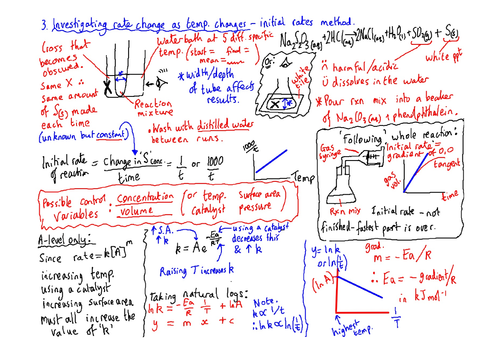 3. Investigating rate change as temp. changes - initial rates method.
Cross that
becomes
obscured.
Same X ∴
same amount
of S(s) made
each time
(unknown but constant)
water bath at 5 diff. specific
temp. (start = final =
mean =
X
Reaction
mixture
*width/depth
of tube affects
results.
• Wash with distilled water
between runs.
Or:
X
white tile
Na2S2O3(aq)+2HCl(aq)→2NaCl(aq)+H2O(l)+SO2(g)+S(s)
white ppt
harmful/acidic
dissolves in the water
*Pour rxn mix into a beaker
of Na2CO3(aq) + phenolphthalein.
Initial rate
of reaction = change in S conc. / time = 1/t or 1000/t
1000/t
Temp
'Following' whole reaction:
Gas
syringe
Rxn mix
Initial rate =
gradient at 0,0
tangent
gas
vol.
time
Initial rate - not
finished - fastest part is over.
Possible control
variables:
Concentration
volume
(or temp. surface area
catalyst pressure)
A-level only:
Since rate=k[A]^m
increasing temp.
using a catalyst
increasing surface area
must all increase the
value of 'k'
↑ S.A.
↑ k
k = Ae^-Ea/RT
using a catalyst
decreases this
& ↑ k
Raising T increases k
Taking natural logs:
ln k = -Ea/R 1/T + ln A
y = m x + c
Note.
k ∝ 1/t
∴ ln k ∝ ln(1/t)
y = ln k
or ln(1/t)
(ln A)
highest
temp.
1/T
grad.
m = -Ea/R
∴ Ea = -gradient/R
in kJmol⁻¹